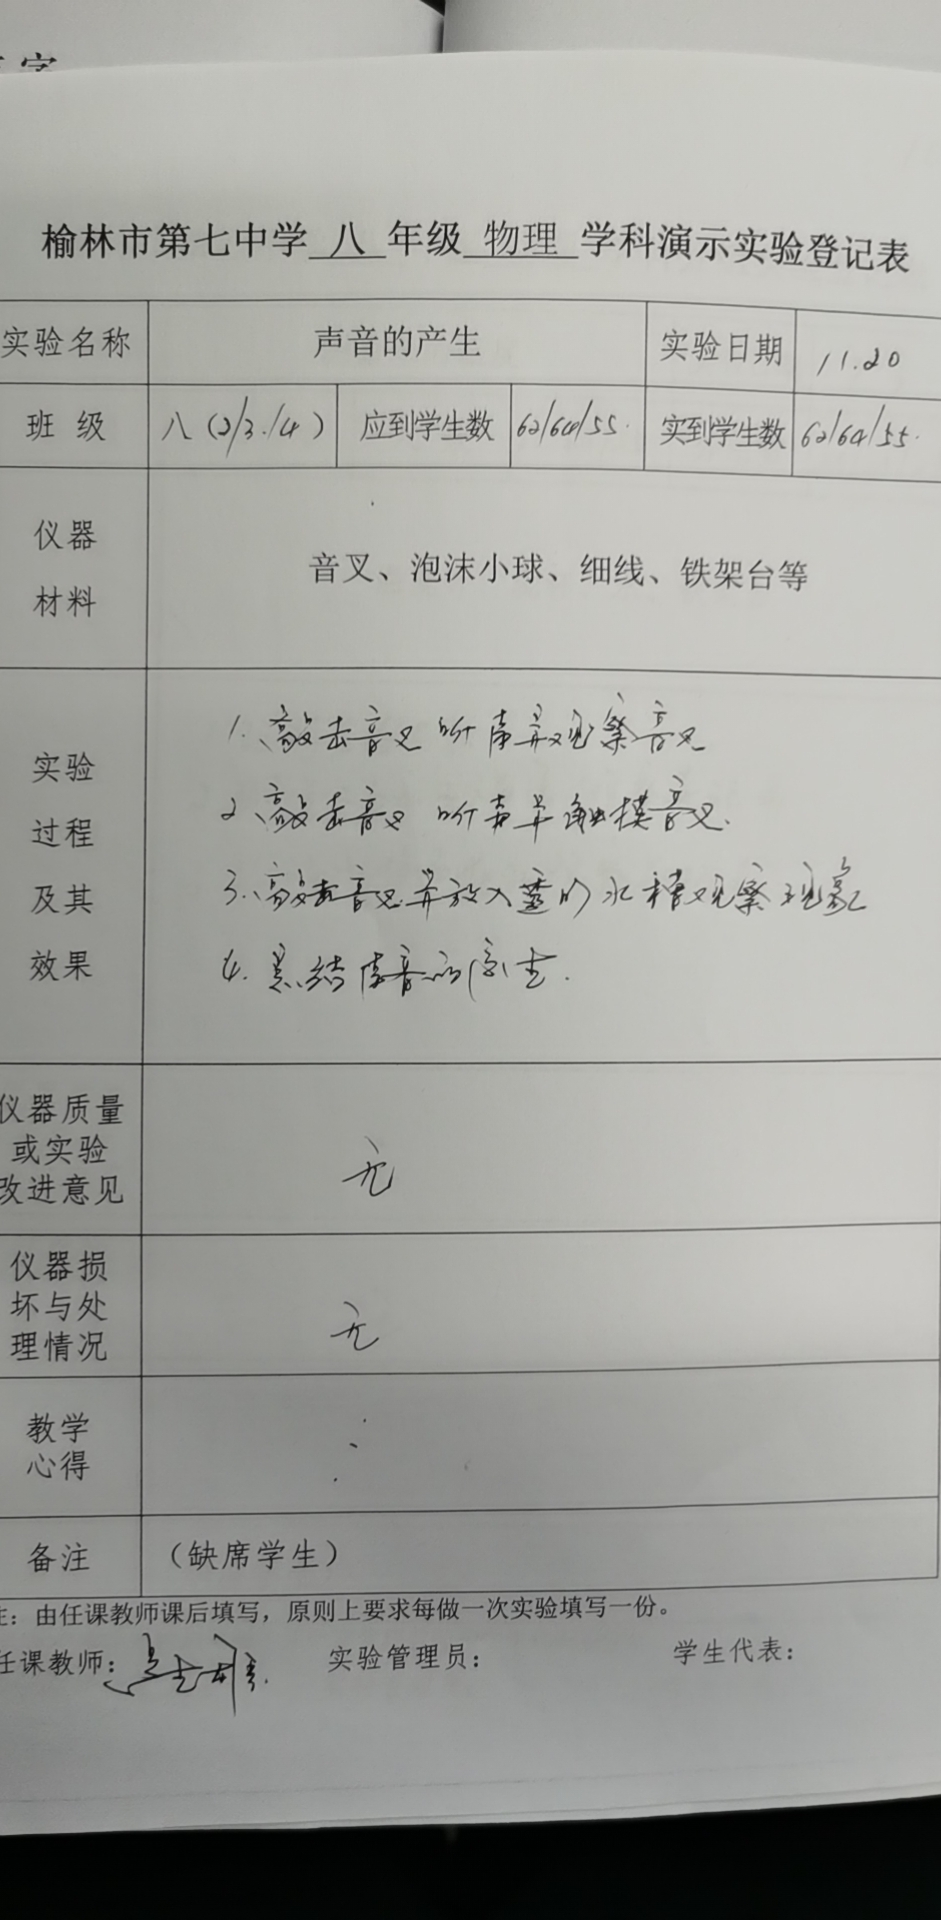 榆林市第七中学 八 年级 物理 学科演示实验登记表
实验名称 声音的产生 实验日期 11.20
班 级 八(2/3/4) 应到学生数 62/64/55. 实到学生数 62/64/55.
仪器
材料
音叉、泡沫小球、细线、铁架台等
实验
过程
及其
效果
1.敲击音叉 听声并观察音叉
2.敲击音叉 听声并触摸音叉.
3.敲击音叉并放入 的水槽观察现象
4.总结声音的产生.
仪器质量
或实验
改进意见
无
仪器损
坏与处
理情况
无
教学
心得
备注 (缺席学生)
注：由任课教师课后填写，原则上要求每做一次实验填写一份。
任课教师： 实验管理员： 学生代表：